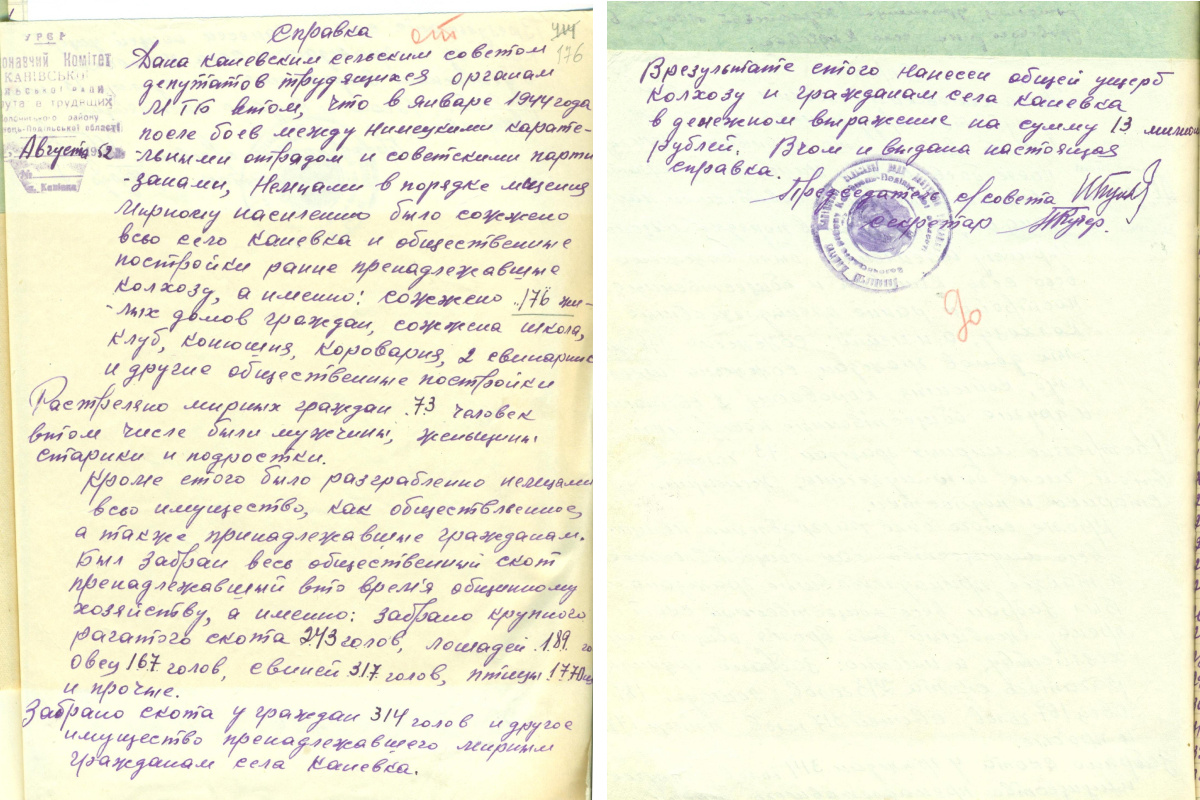 Справка
от
176
УРСР
Комітет
КАНІВСЬКОЇ
Августа 52
Дана каневским сельским советом
депутатов трудящихся органам
МГБ втом, что в январе 1944 года
после боев между Нимецкими карате-
-льными отрадом и советскими парти
-занами, Немцами в порядке мщения
Мирному населению было сожжено
всьо село Каневка и общественные
постройки ранее пренадлежавшие
колхозу, а именно: сожжено 176 жи-
-лых домов граждан, сожжена школа,
клуб, конюшня, Коровария, 2 свинарник
и другие общественные постройки
Растреляно мирных граждан 73 человек
втом числе были мужчины, женьщины
старики и подростки.
Кроме етого было разграбленно немцами
всьо имущество, как общественное,
а также принадлежавшые гражданам.
Был забран весь общественный скот
пренадлежавший вто время общинному
хозяйству, а именно: забрано крупного
рагатого скота 243 голов, лошадей 189 го
овец 167 голов, свиней 317 голов, птицы 1770
и прочые.
Забрано скота у граждан 314 голов и другое
имущество пренадлежавшего мирным
гражданам села Каневка.
Врезультате етого нанесен общей ущерб
колхозу и гражданам села Каневка
в денежном выражение на сумму 13 милион
рублей. Вчом и выдана настоящая
справка.
Председатель с/совета
секретар